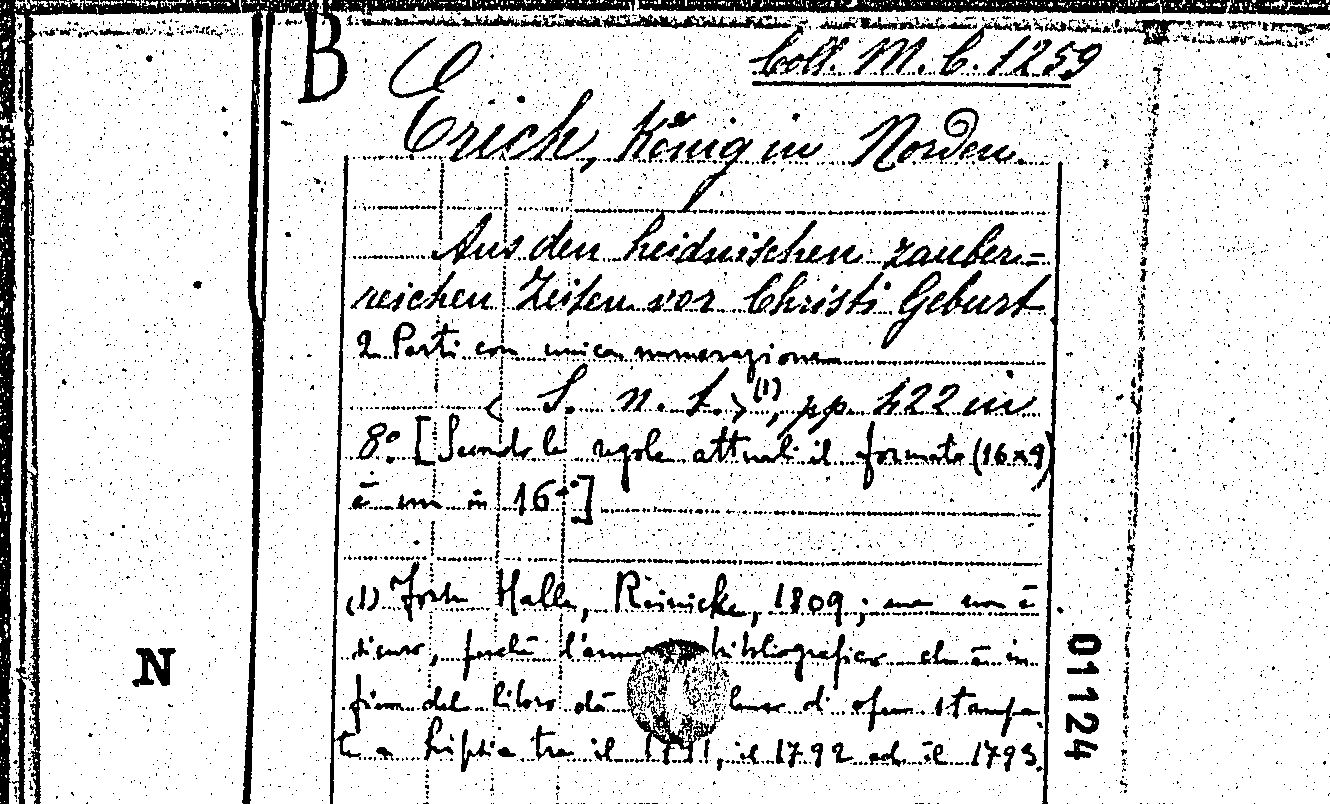 B
Coll. M. C. 1259
Erich, König in Norden.
Aus den heidnischen zauber=
reichen Zeiten vor Christi Geburt.
2 Parti con unica numerazione
< S. n. t. >(1), pp. 422 in
8º. [Secondo le regole attuali il formato (16x9)
è un in 16º]
(1) Forse Halle, Reinicke, 1809; ma non è
sicuro, perchè l'annuncio bibliografico che è in
fine del libro dà di opere stampa
te a tra il 1791, il 1792 ed il 1793.
N
01124